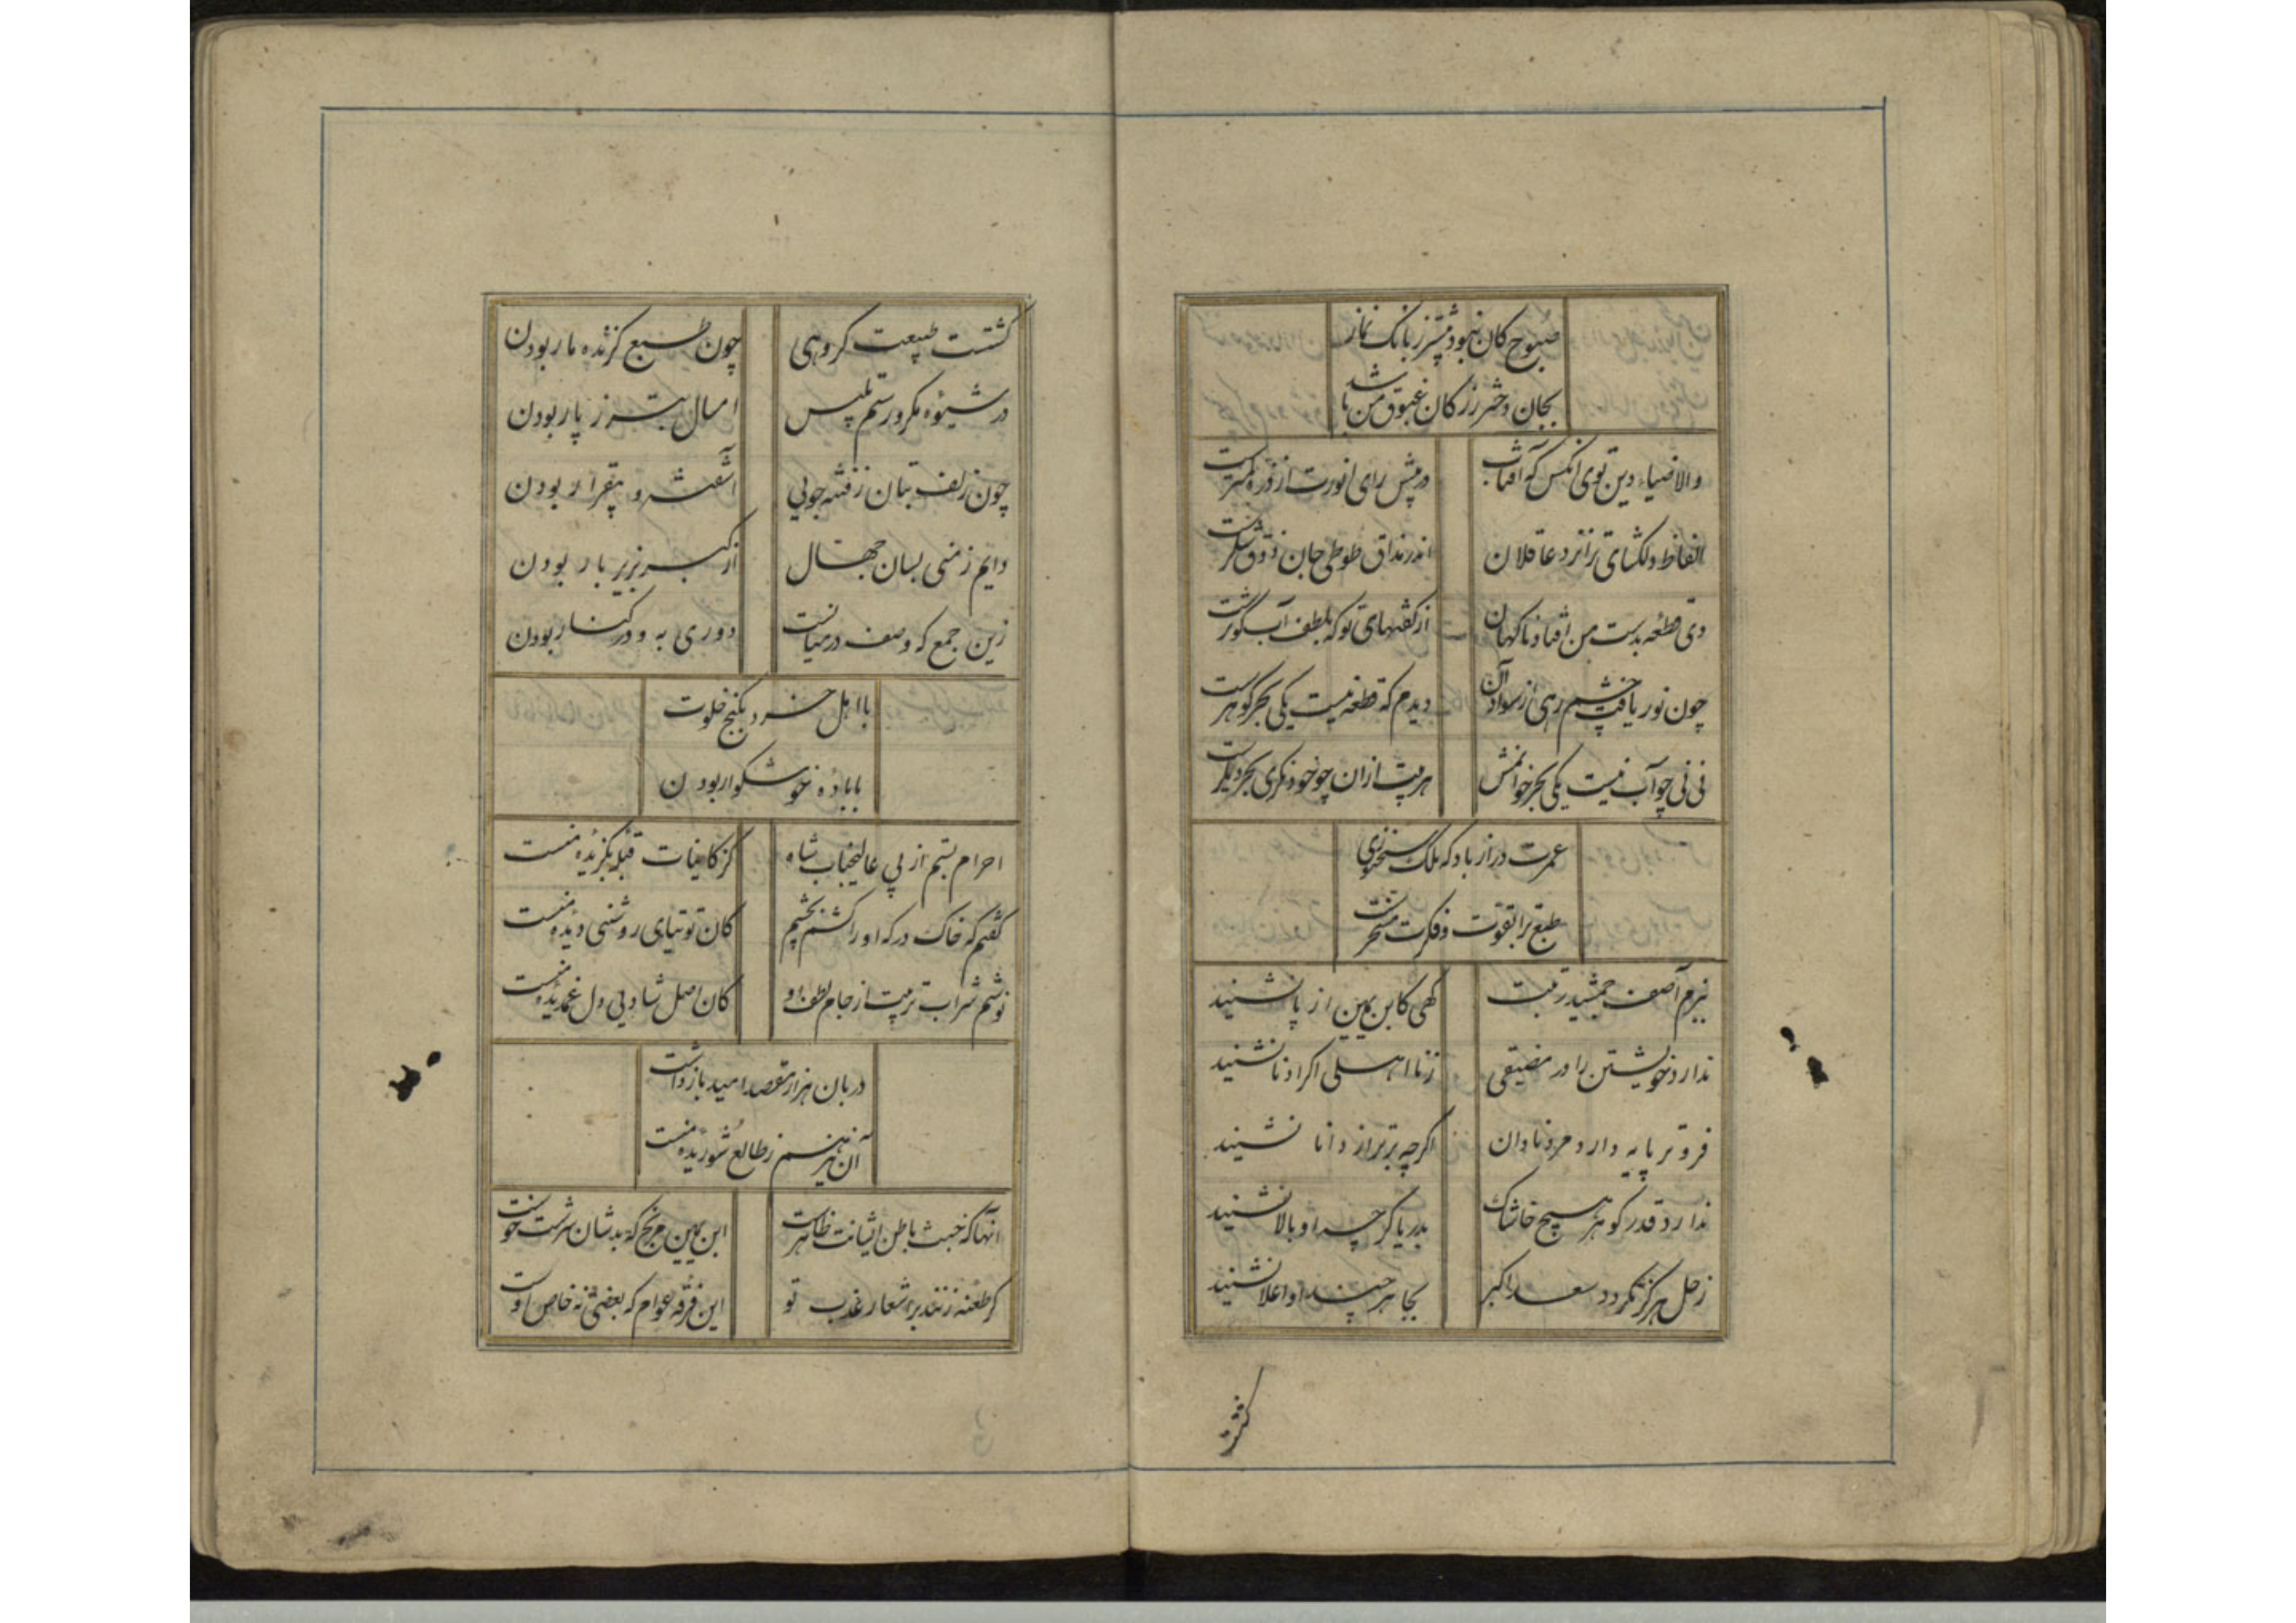 صبوح کان نبود پیشتر ز بانک نماز
بجان دختر رز کان غبوق من باشد
والا ضیاء دین توی انکس که آفتاب در پیش رای انورت از ذره کمترست
الفاظ دلکشای تو نزد عاقلان اندر مذاق طوطی جان ذوق شکرست
دی قطعه بدست من افتاد ناکهان از کفتهای تو که بلطف آب کوثرست
چون نور یافت چشم رهی از سواد آن دیدم که قطعه نیست یکی بحر کوهرست
نی نی چو آب نیست یکی بحر خوانمش هر بیت ازان چو خود نکری بحر دیکرست
عمرت دراز باد که ملک سخنوری
طبع ترا بقوت فکرت مسخرست
ببزم آصف جمشید رتبت کهی کابن یمین از پا نشیند
ندارد خویشتن را در مضیقی ز نااهلی اکر ادنا نشیند
فروتر پایه دارد مرد نادان اکرچه برتر از دانا نشیند
ندارد قدر کوهر هیچ خاشاک بدریا کرچه او بالا نشیند
زحل هرکز نکردد سعد اکبر بجا هر چند او اعلا نشیند
کشتست
کشتست طبیعت کروهی چون طبع کزنده مار بودن
در شیوه مکر و رسم تلبیس امسال بتر ز پار بودن
چون زلف بتان ز فتنه جویی آشفته و بیقرار بودن
دایم ز منی بسان جهال از کبر بزیر بار بودن
زین جمع که وصف در میانست دوری به و در کنار بودن
با اهل خرد بکنج خلوت
با باده خوشکوار بودن
احرام بستم از پی عالیجناب شاه کز کاینات قبله بکزیده منست
کفتم که خاک درکه او را کشم بچشم کان توتیای روشنی دیده منست
نوشم شراب تربیت از جام لطف او کان اصل شادیی دل غمدیده منست
دربان هزار مقصد امید باز داشت
آن نیز هم ز طالع شوریده منست
آنها که خبث باطن ایشانت ظاهرست ابن یمین مرنج که بد شان سرشت و خوست
کر طعنه زنند بر اشعار عذب تو این فرقه عوام که بعضی نه خاص اوست